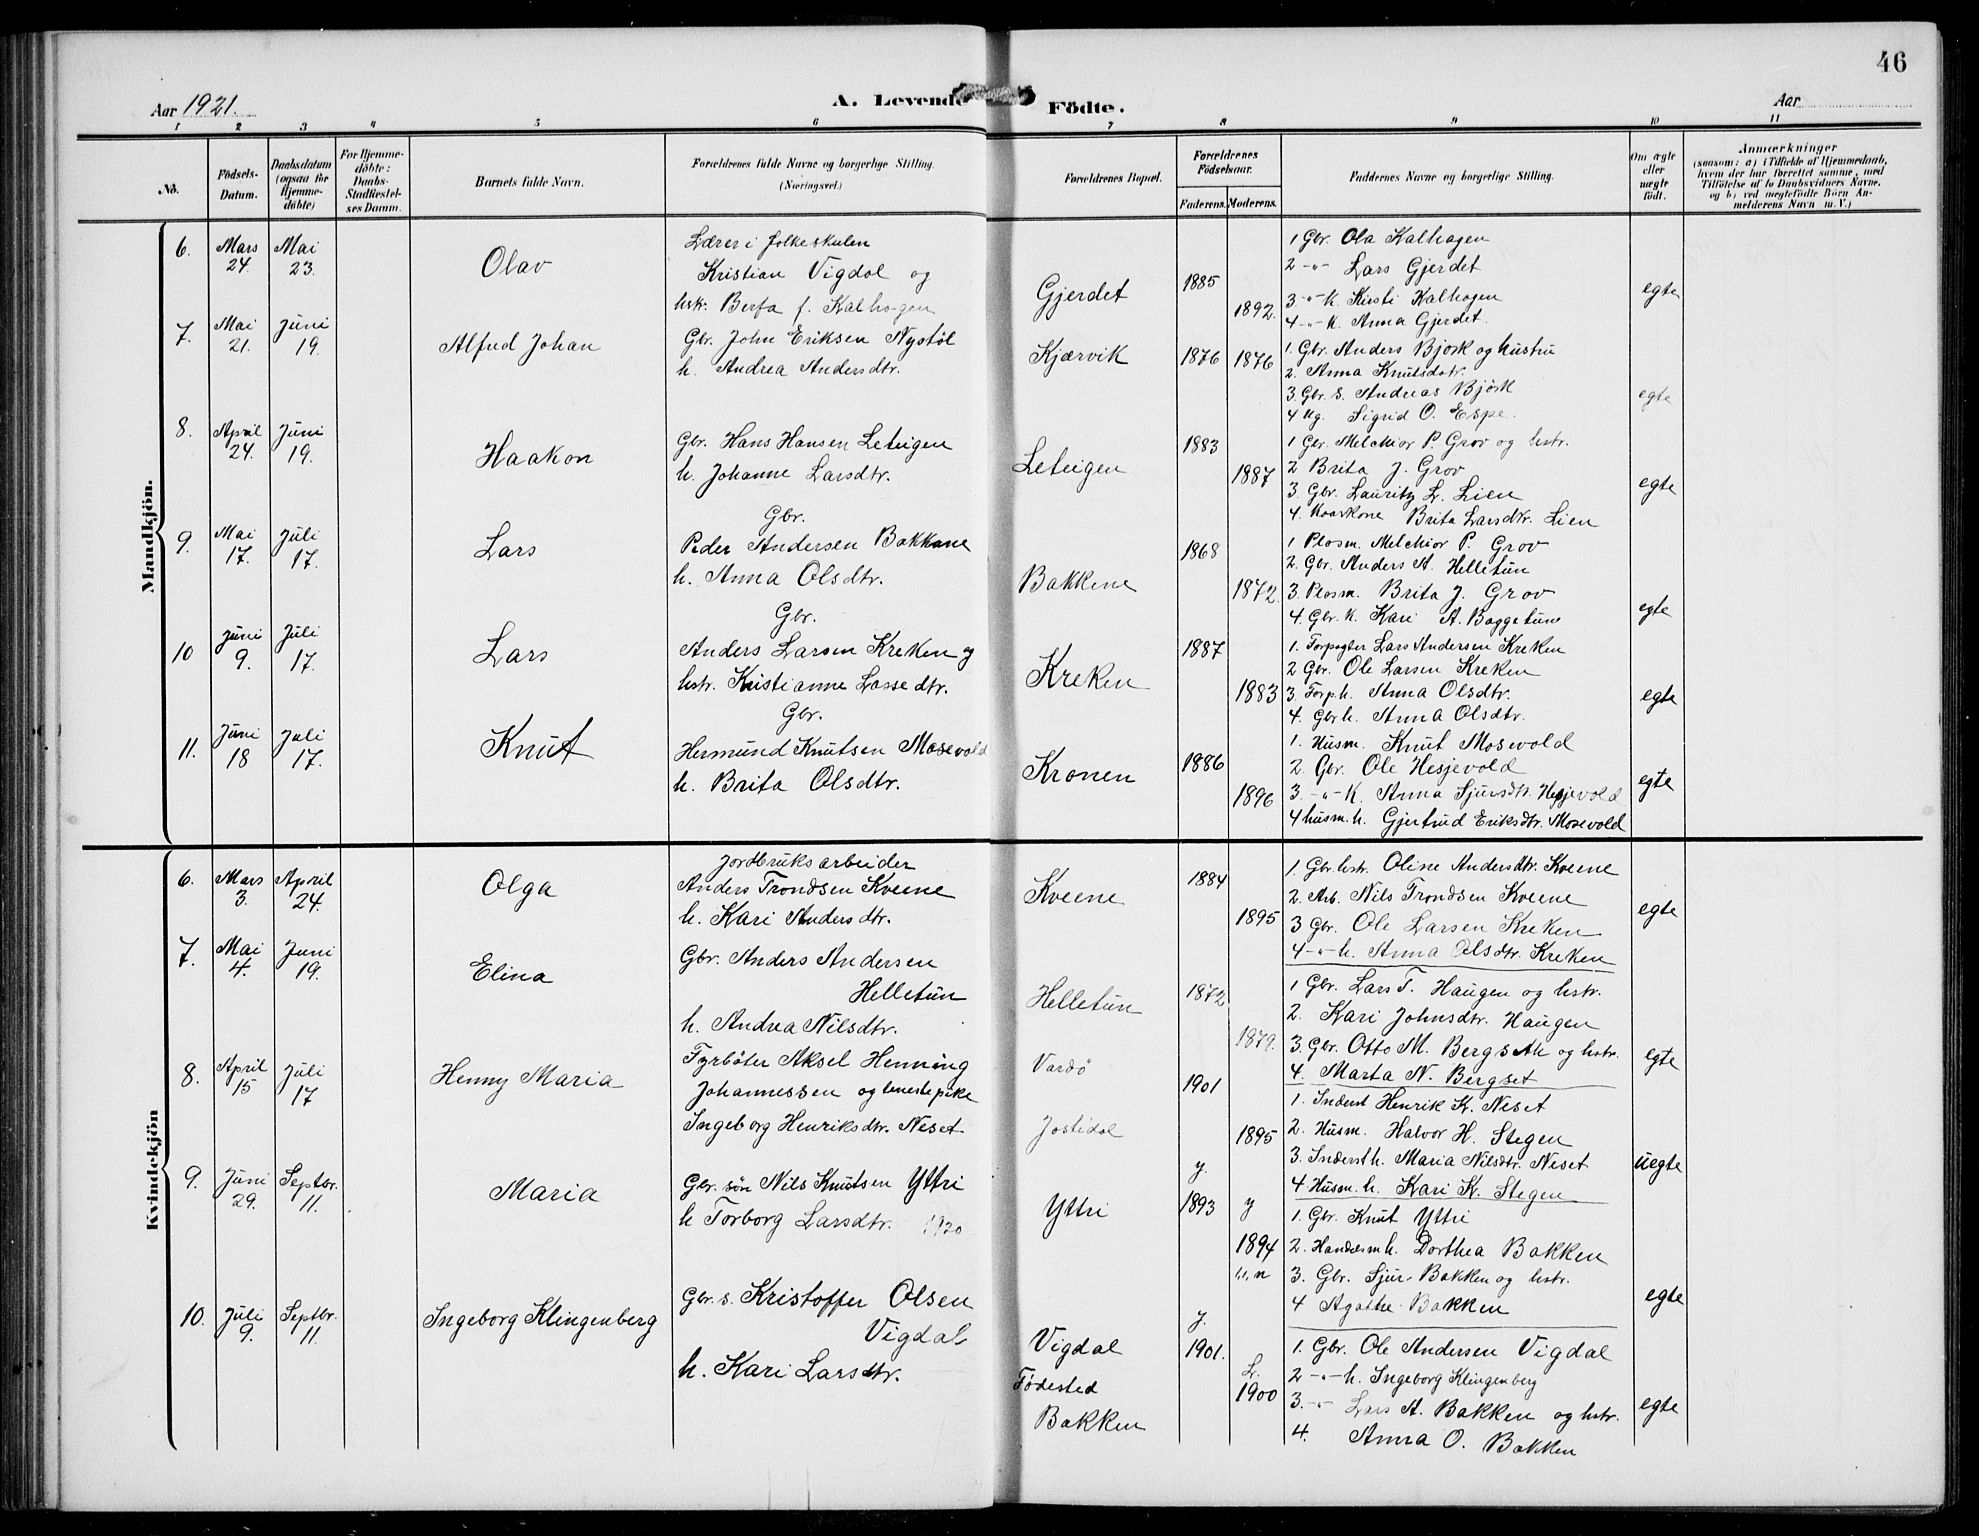 46
Aar 1921.
A. Levende Födte.
Aar
1 2 3 4 5 6 7 8 9 10 11
No.
Födsels-Datum.
Daabsdatum (ogsaa för Hjemmedöbte)
For Hjemmedöbte: Daabs-Stadfæstelses Datum.
Barnets fulde Navn.
Forældrenes fulde Navne og borgerlige Stilling. (Næringsvei.)
Forældrenes Bopæl.
Forældrenes Födselsaar.
Faderens. Moderens.
Faddernes Navne og borgerlige Stilling.
Om ægte eller uægte födt.
Anmærkninger
(saasom: a) i Tilfælde af Hjemmedaab, hvem der har forrettet samme, med Tilföielse af to Daabsvidners Navne, og b) ved uægtefödte Börn Anmelderens Navn m. V.)
Mandkjön.
6. Mars 24. Mai 23. Olav
Lærer i folkeskulen
Kristian Vigdal og
hsk. Berta f. Kalhagen
Gjerdet 1885 1892.
1 Gbr. Ola Kalhagen
2 -"- Lars Gjerdet
3 -"- k. Kirsti Kalhagen
4 -"- k. Anna Gjerdet.
egte
7. Mai 21. Juni 19. Alfred Johan
Gbr. John Eriksen Nystöl
h. Andrea Andersdtr.
Kjærvik 1876 1876
1. Gbr. Anders Bjørk og hustru
2. Anna Knutsdotr.
3. Gbr. s. Andreas Bjørk
4 Ug. Sigrid O. Espe.
egte
8. April 24. Juni 19. Haakon
Gbr. Hans Hansen Leteigen
h. Johanne Larsdtr.
Leteigen 1883 1887
1 Gbr. Melchior P. Grov og hstr.
2 Brita J. Grov
3. Gbr. Lauritz L. Lien
4. Kaarkone Brita Larsdtr. Lien
egte
9. Mai 17. Juli 17. Lars
Gbr.
Peder Andersen Bakkene
h. Anna Olsdtr.
Bakkene 1868 1872.
1 Plasm. Melchior P. Grov
2. Gbr. Anders A. Helletun
3. Plasm. Brita J. Grov
4. Gbr. k. Kari A. Baggetun
egte
10 Juni 9. Juli 17. Lars
Gbr.
Anders Larsen Kreken og
hstr. Kristianne Lassedtr.
Kreken 1887 1883
1. Forpagter Lars Andersen Kreken
2 Gbr. Ole Larsen Kreken
3. Forp. h. Anna Olsdtr.
4. Gbr h. Anna Olsdtr.
egte
11. Juni 18 Juli 17. Knut
Gbr.
Hermund Knutsen Mosevold
h. Brita Olsdtr.
Kronen 1886 1896
1. Husm. Knut Mosevold
2. Gbr. Ole Hesjevold
3. -"- K. Anna Sjursdtr. Hesjevold
4 husm. h. Gjertrud Eriksdtr. Mosevold
egte
Kvindekjön
6. Mars 3. April 24. Olga
Jordbruksarbeider
Anders Trondsen Kveene
h. Kari Andersdtr.
Kveene 1884 1895
1. Gbr. hstr. Oline Andersdtr. Kveene
2. Arb. Nils Trondsen Kveene
3 Gbr. Ole Larsen Kreken
4 -"- h. Anna Olsdtr. Kreken
egte
7. Mai 4. Juni 19. Elina
Gbr. Anders Andersen
Helletun
h. Andrea Nilsdtr.
Helletun 1872 1879.
1 Gbr. Lars T. Haugen og hstr.
2. Kari Johnsdtr. Haugen
3. Gbr. Otto M. Bergseth og hstr.
4. Marta N. Bergset
egte
8. April 15 Juli 17 Henny Maria
Fyrbøter Aksel Henning
Johannessen og tenestepike
Ingeborg Henriksdtr. Neset
Vardö
Jostedal
1901 1895
1. Inderst Henrik K. Neset
2. Husm. Halvor H. Stegen
3. Inderst h. Maria Nilsdtr. Neset
4. Husm. h. Kari K. Stegen
uegte
9. Juni 29. Septbr. 11. Maria
Gbr. søn Nils Knutsen Yttri
h Torborg Larsdtr. 1920
Yttri y. 1893 y 1894
1. Gbr. Knut Yttri
2. Handelsm h. Dorthea Bakken
3. Gbr. Sjur Bakken og hstr.
4 Agathe Bakken
egte
10. Juli 9. Septbr. 11. Ingeborg Klingenberg
Gbr. s. Kristoffer Olsen
Vigdal
h. Kari Larsdtr.
Vigdal
Fødested
Bakken
y. 1901. L. 1900
1. Gbr. Ole Andersen Vigdal
2 -"- h. Ingeborg Klingenberg
3. -"- Lars A. Bakken og hstr.
4. Anna O. Bakken
egte